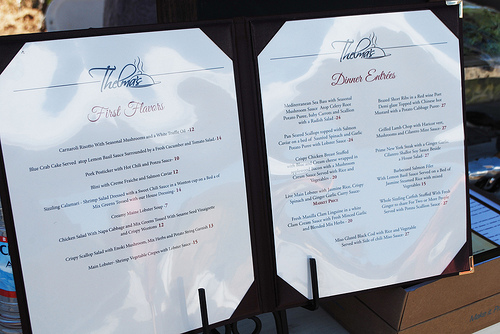 Thelma's
First Flavors
Carnaroli Risotto With Seasonal Mushrooms and a White Truffle Oil -12
Blue Crab Cake Served atop Lemon Basil Sauce Surrounded by a Fresh Cucumber and Tomato Salad- 14
Pork Potsticker with Hot Chili and Ponzu Sauce- 10
Blini with Creme Fraiche and Salmon Caviar 12
Sizzling Calamari - Shrimp Salad Dressed with a Sweet Chili Sauce in a Wonton cup on a Bed of
Mix Greens Tossed with our House Dressing- 14
Creamy Maine Lobster Soup -7
Chicken Salad With Napa Cabbage and Mix Greens Tossed With Sesame Soy Vinaigrette
and Crispy Wontons 12
Crispy Scallop Salad with Enoki Mushroom, Mix Herbs and Potato String Garnish 13
Main Lobster- Shrimp Vegetable Crepes with Lobster Sauce- 15
Thelma's
Dinner Entrées
Mediterranean Sea Bass with Seasonal
Mushroom Sauce Atop Celery Root
Potato Puree, Baby Carrots and Scallion
with a Radish Salad- 24
Pan Seared Scallops topped with Salmon
Caviar on a bed of Sautéed Spinach and Garlic
Potato Puree with Lobster Sauce- 24
Crispy Chicken Breast Stuffed
Cream cheese wrapped in
Bacon with a Mushroom
Cream Sauce Served with Rice and
Vegetables. - 20
Live Main Lobster with Jasmine Rice, Crispy
Spinach and Ginger-Garlic-Curry Sauce-
Market Price
Fresh Manila Clam Linguine in a white
Clam Cream Sauce with Fresh Minced Garlic
and Blended Mix Herbs - 20
Miso Glazed Black Cod with Rice and Vegetable
Served with Side of chile Miso Sauce- 27
Braised Short Ribs in a Red wine Port
Demi glaze Topped with Chinese hot
Mustard with a Potato Cabbage Puree- 27
Grilled Lamb Chop with Haricot vert,
Mushrooms and Cilantro-Mint Sauce- 27
Prime New York Steak with a Ginger Garlic
Cilantro Butter Soy Sauce Beside
a House Salad- 27
Barbecued Salmon Filet
With Lemon Basil Sauce Served on a Bed of
Jasmine Steamed Rice with mixed
Vegetables 18
Whole Sizzling Catfish Stuffed With Fresh
Ginger to share For Two or More People
Served with Ponzu Scallion Sauce- 27